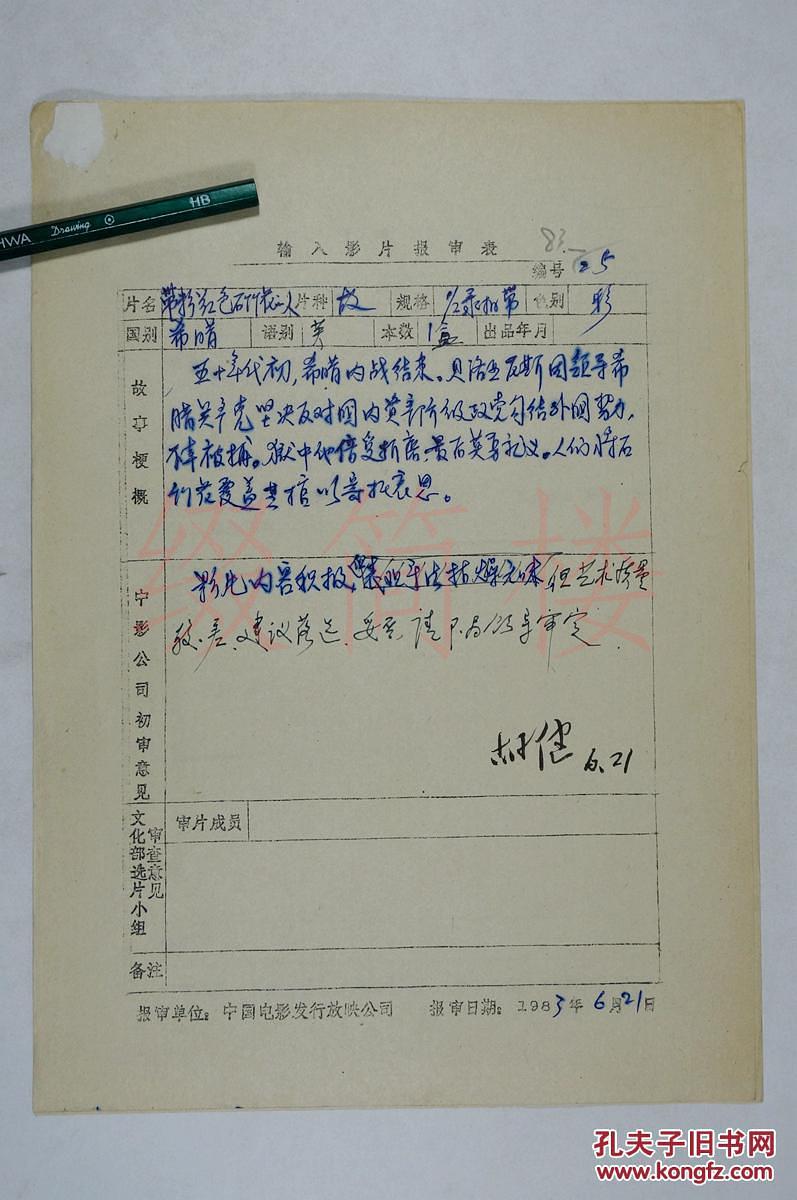 HWA Drawing HB
输入影片报审表
83.
编号 25
片名 带粉红色石竹花的人 片种 故 规格 录相带 色别 彩
国别 希腊 语别 英 本数 1盒 出品年月
故事梗概
五十年代初，希腊内战结束。贝洛亚尼斯因领导希
腊共产党坚决反对国内资产阶级政党勾结外国势力，
不幸被捕。狱中他倍受折磨，最后英勇就义。人们将石
竹花覆盖其棺以寄托哀思。
中影公司初审意见
影片内容积极，但手法枯燥 但艺术质量
较差，建议落选，妥否，请 局领导审定.
胡健 6.21
文化部选片小组审查意见
审片成员
备注
报审单位：中国电影发行放映公司 报审日期：1983年6月21日
缀简楼
孔夫子旧书网
www.kongfz.com